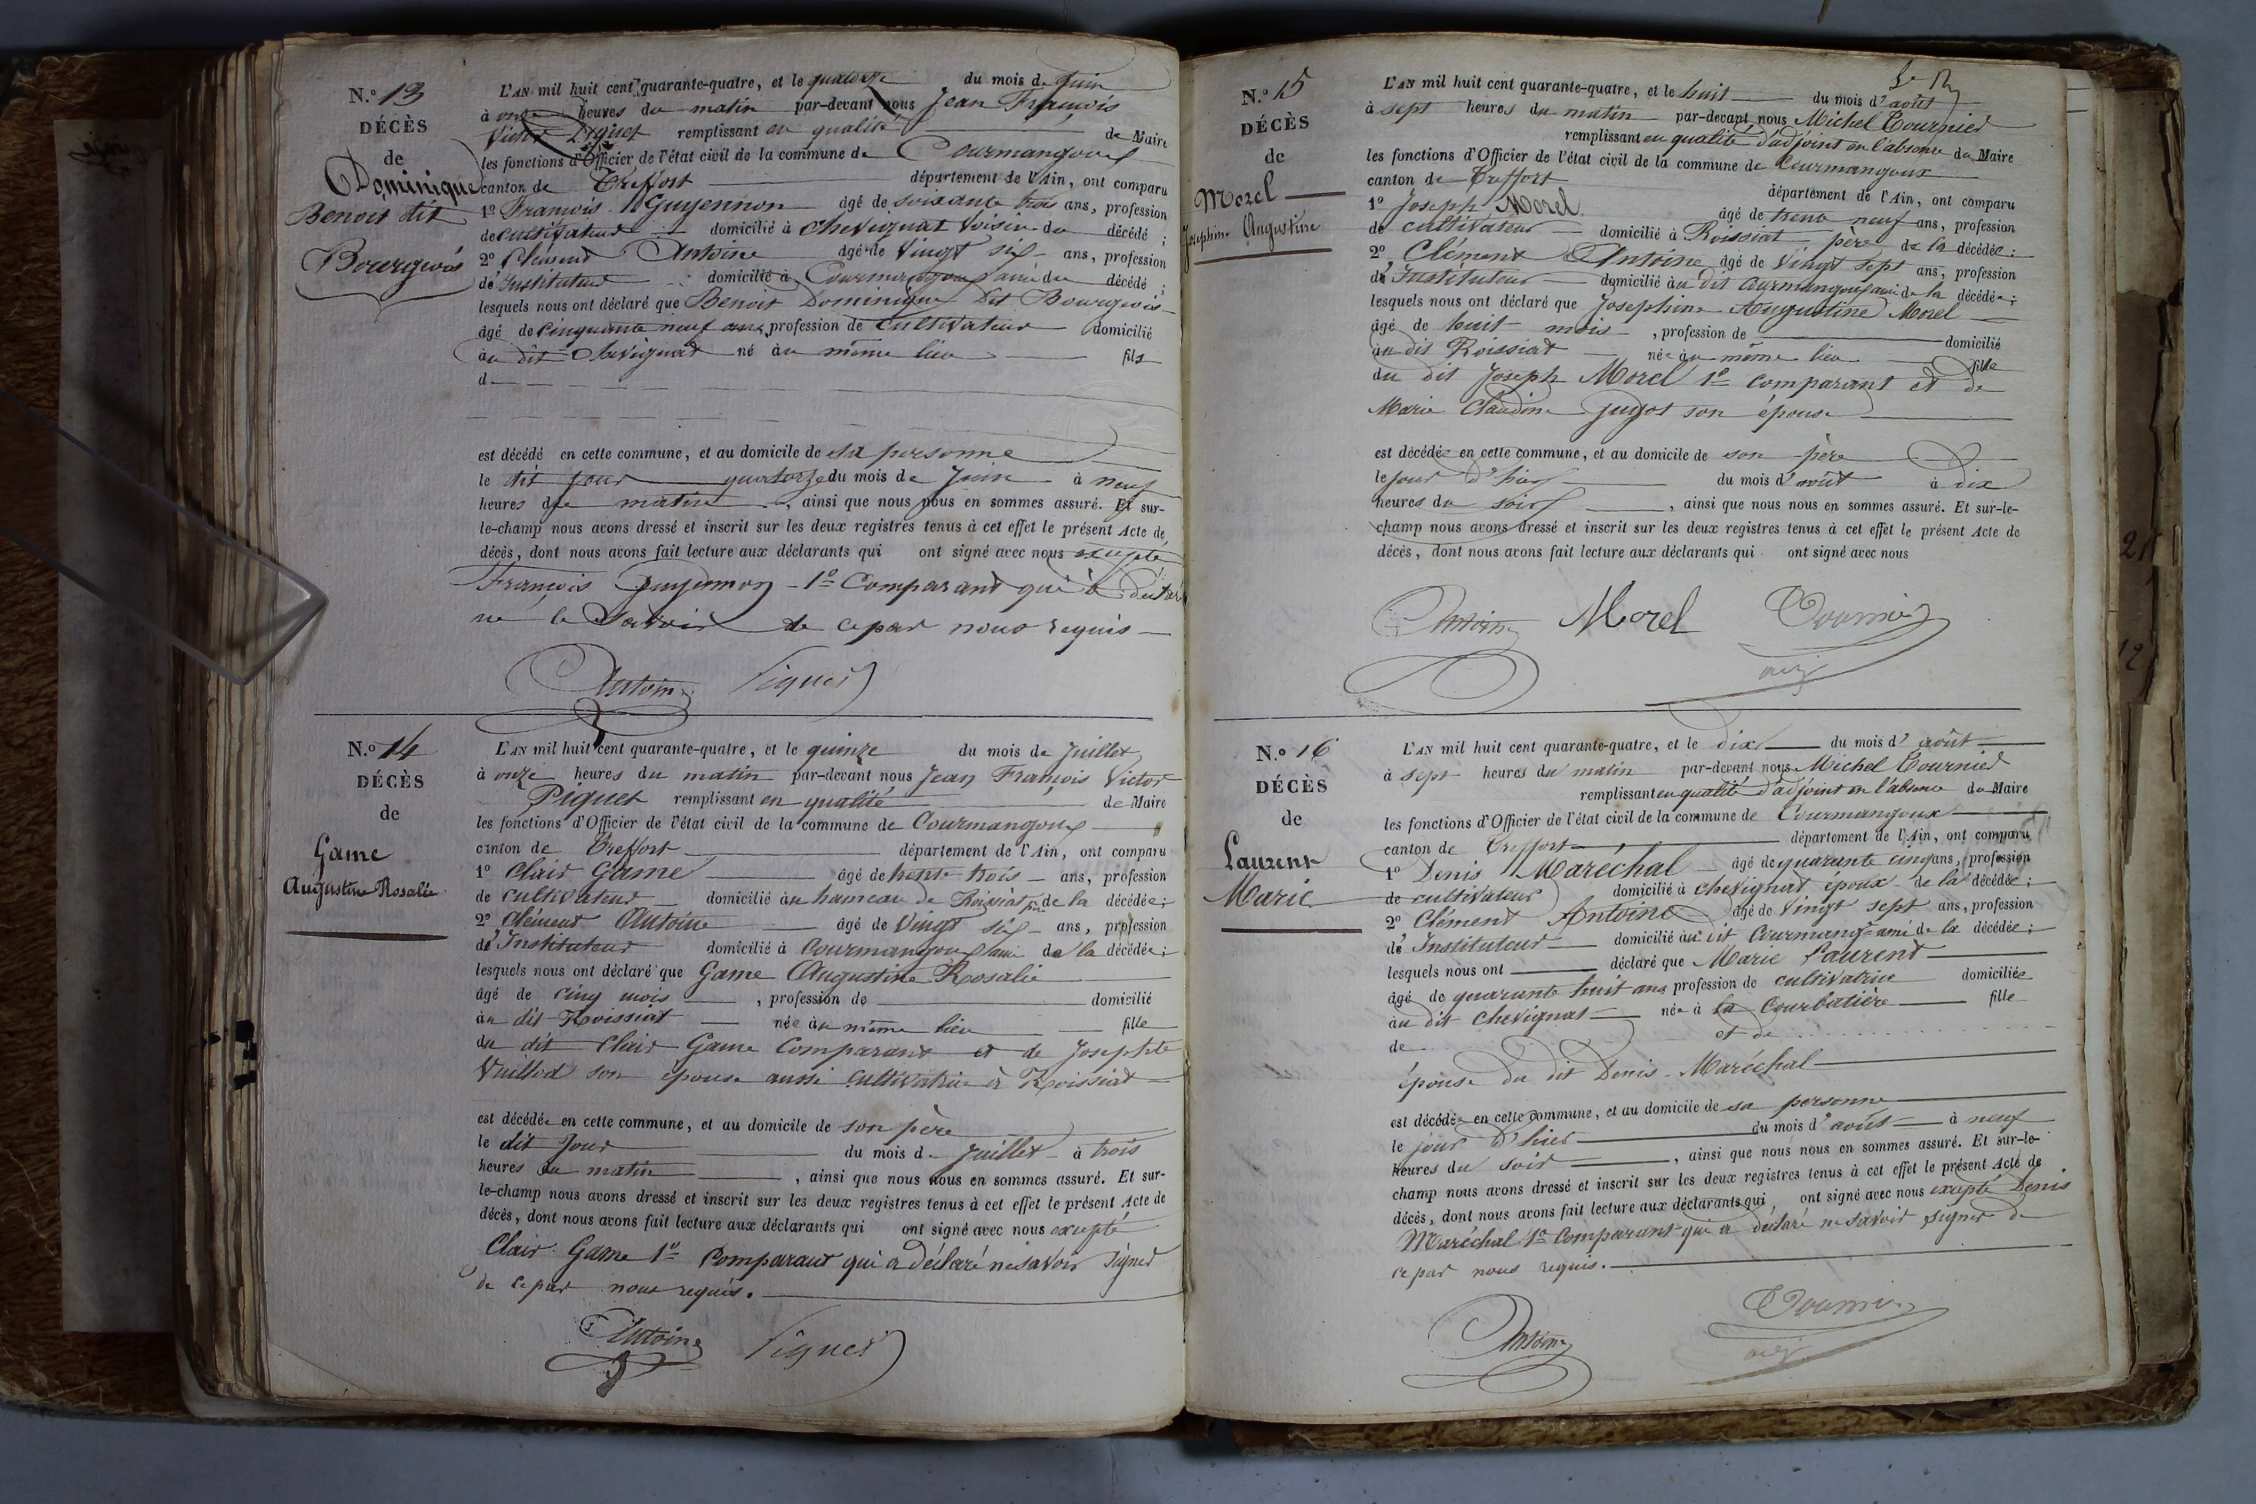 N.° 13
DÉCÈS
de
Dominique
Benoit dit
Bourgeois
L'AN mil huit cent quarante-quatre, et le quatorze du mois de Juin
à onze heures du matin par-devant nous Jean François
Victor Piquet remplissant en qualité de Maire
les fonctions d'Officier de l'état civil de la commune de Courmangoux
canton de Treffort département de l'Ain, ont comparu
1° François Guyennon âgé de soixante trois ans, profession
de cultivateur domicilié à Chevignat voisin du décédé ;
2° Clément Antoine âgé de vingt six ans, profession
d'Instituteur domicilié à Courmangoux ami du décédé ;
lesquels nous ont déclaré que Benoit Dominique dit Bourgeois
âgé de cinquante neuf ans, profession de cultivateur domicilié
au dit Chevignat né au même lieu fils
d
est décédé en cette commune, et au domicile de sa personne
le dit jour quatorze du mois de Juin à neuf
heures du matin, ainsi que nous nous en sommes assuré. Et sur-
le-champ nous avons dressé et inscrit sur les deux registres tenus à cet effet le présent Acte de
décès, dont nous avons fait lecture aux déclarants qui ont signé avec nous excepté
François Guyennon 1° Comparant qui a déclaré
ne le savoir de ce par nous requis
Antoine Piquet
N.° 14
DÉCÈS
de
Game
Augustine Rosalie
L'AN mil huit cent quarante-quatre, et le quinze du mois de Juillet
à onze heures du matin par-devant nous Jean François Victor
Piquet remplissant en qualité de Maire
les fonctions d'Officier de l'état civil de la commune de Courmangoux
canton de Treffort département de l'Ain, ont comparu
1° Clair Game âgé de trente trois ans, profession
de cultivateur domicilié au hameau de Roissiat père de la décédée ;
2° Clément Antoine âgé de vingt six ans, profession
d'Instituteur domicilié à Courmangoux ami de la décédée ;
lesquels nous ont déclaré que Game Augustine Rosalie
âgé de cinq mois, profession de domicilié
au dit Roissiat née au même lieu fille
du dit Clair Game Comparant et de Josephte
Vuillod son épouse aussi cultivatrice à Roissiat
est décédée en cette commune, et au domicile de son père
le dit jour du mois de Juillet à trois
heures du matin, ainsi que nous nous en sommes assuré. Et sur-
le-champ nous avons dressé et inscrit sur les deux registres tenus à cet effet le présent Acte de
décès, dont nous avons fait lecture aux déclarants qui ont signé avec nous excepté
Clair Game 1° Comparant qui a déclaré ne savoir signer
de ce par nous requis.
Antoine Piquet
N.° 15
DÉCÈS
de
Morel
Josephine Augustine
L'AN mil huit cent quarante-quatre, et le huit du mois d'août
à sept heures du matin par-devant nous Michel Tournier
remplissant en qualité d'adjoint en l'absence du Maire
les fonctions d'Officier de l'état civil de la commune de Courmangoux
canton de Treffort département de l'Ain, ont comparu
1° Joseph Morel âgé de trente neuf ans, profession
de cultivateur domicilié à Roissiat père de la décédée ;
2° Clément Antoine âgé de vingt sept ans, profession
d'Instituteur domicilié au dit Courmangoux ami de la décédée ;
lesquels nous ont déclaré que Josephine Augustine Morel
âgé de huit mois, profession de domicilié
au dit Roissiat née au même lieu fille
du dit Joseph Morel 1° comparant et de
Marie Claudine Jugot son épouse
est décédée en cette commune, et au domicile de son père
le jour d'hier du mois d'août à dix
heures du soir, ainsi que nous nous en sommes assuré. Et sur-le-
champ nous avons dressé et inscrit sur les deux registres tenus à cet effet le présent Acte de
décès, dont nous avons fait lecture aux déclarants qui ont signé avec nous
Antoine Morel Tournier
adj
N.° 16
DÉCÈS
de
Laurent
Marie
L'AN mil huit cent quarante-quatre, et le dix du mois d'août
à sept heures du matin par-devant nous Michel Tournier
remplissant en qualité d'adjoint en l'absence du Maire
les fonctions d'Officier de l'état civil de la commune de Courmangoux
canton de Treffort département de l'Ain, ont comparu
1° Denis Maréchal âgé de quarante cinq ans, profession
de cultivateur domicilié à Chevignat époux de la décédée ;
2° Clément Antoine âgé de vingt sept ans, profession
d'Instituteur domicilié au dit Courmangx ami de la décédée ;
lesquels nous ont déclaré que Marie Laurent
âgé de quarante huit ans profession de cultivatrice domiciliée
au dit Chevignat née à la Courbatière fille
de et de
épouse du dit Denis Maréchal
est décédée en cette commune, et au domicile de sa personne
le jour d'hier du mois d'août à neuf
heures du soir, ainsi que nous nous en sommes assuré. Et sur-le-
champ nous avons dressé et inscrit sur les deux registres tenus à cet effet le présent Acte de
décès, dont nous avons fait lecture aux déclarants qui ont signé avec nous excepté Denis
Maréchal 1° comparant qui a déclaré ne savoir signer de
ce par nous requis.
Antoine Tournier
adj